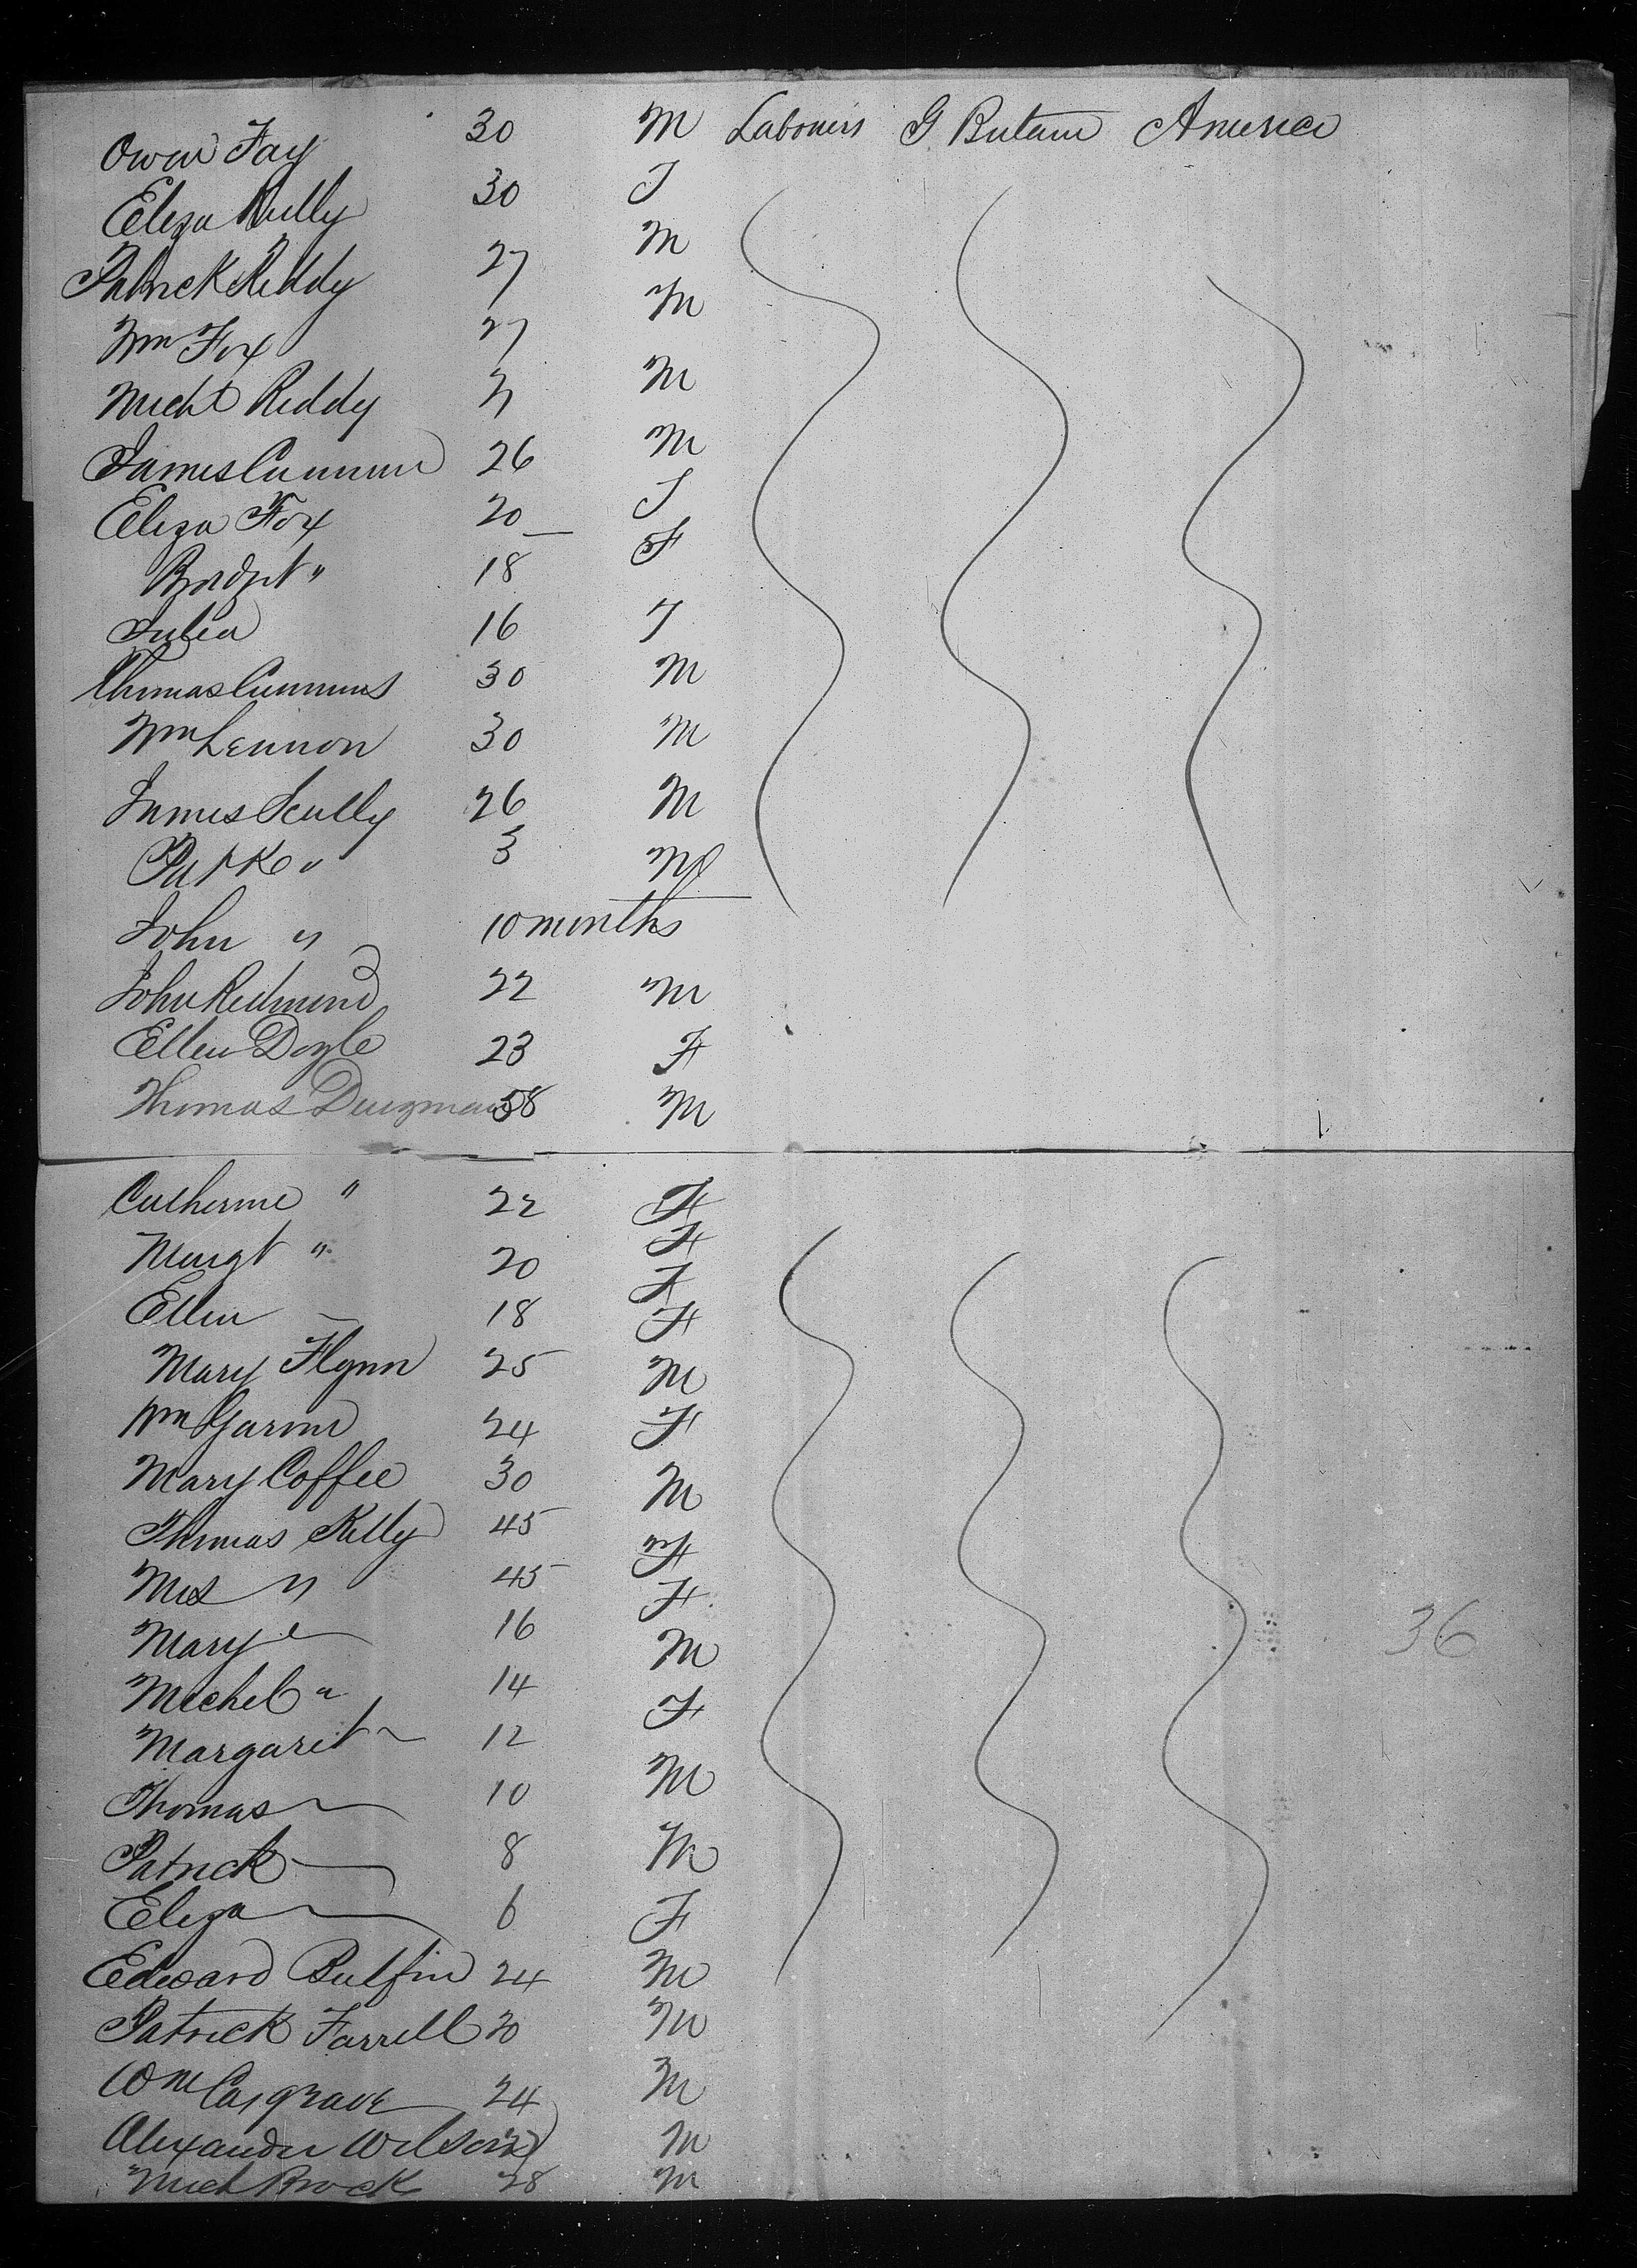 Owen Fay 30 M Labourers G Britain America
Eliza Kelly 30 F
Patrick Reddy 27 M
Wm Fox 27 M
Michl Reddy 21 M
James Cummins 26 M
Eliza Fox 20 F
Bridget " 18 F
Julia 16 F
Thomas Cummins 30 M
Wm Lennon 30 M
James Scully 26 M
Patk " 3 M
John " 10 months
John Redmond 22 M
Ellen Doyle 23 F
Thomas 58 M
Catherine " 22 F
Margt " 20 F
Ellen — 18 F
Mary Flynn 25 F
Wm 24 M
Mary Coffee 30 F
Thomas Kelly 45 M
Mrs " 45 F
Mary " 16 F
Michel " 14 M
Margaret " 12 F
Thomas — 10 M
Patrick — 8 M
Eliza — 6 F
Edward Bulfin 24 M
Patrick Farrell 20 M
Wm Cosgrave 24 M
Alexander Wilson M
Mich Brock 28 M
36